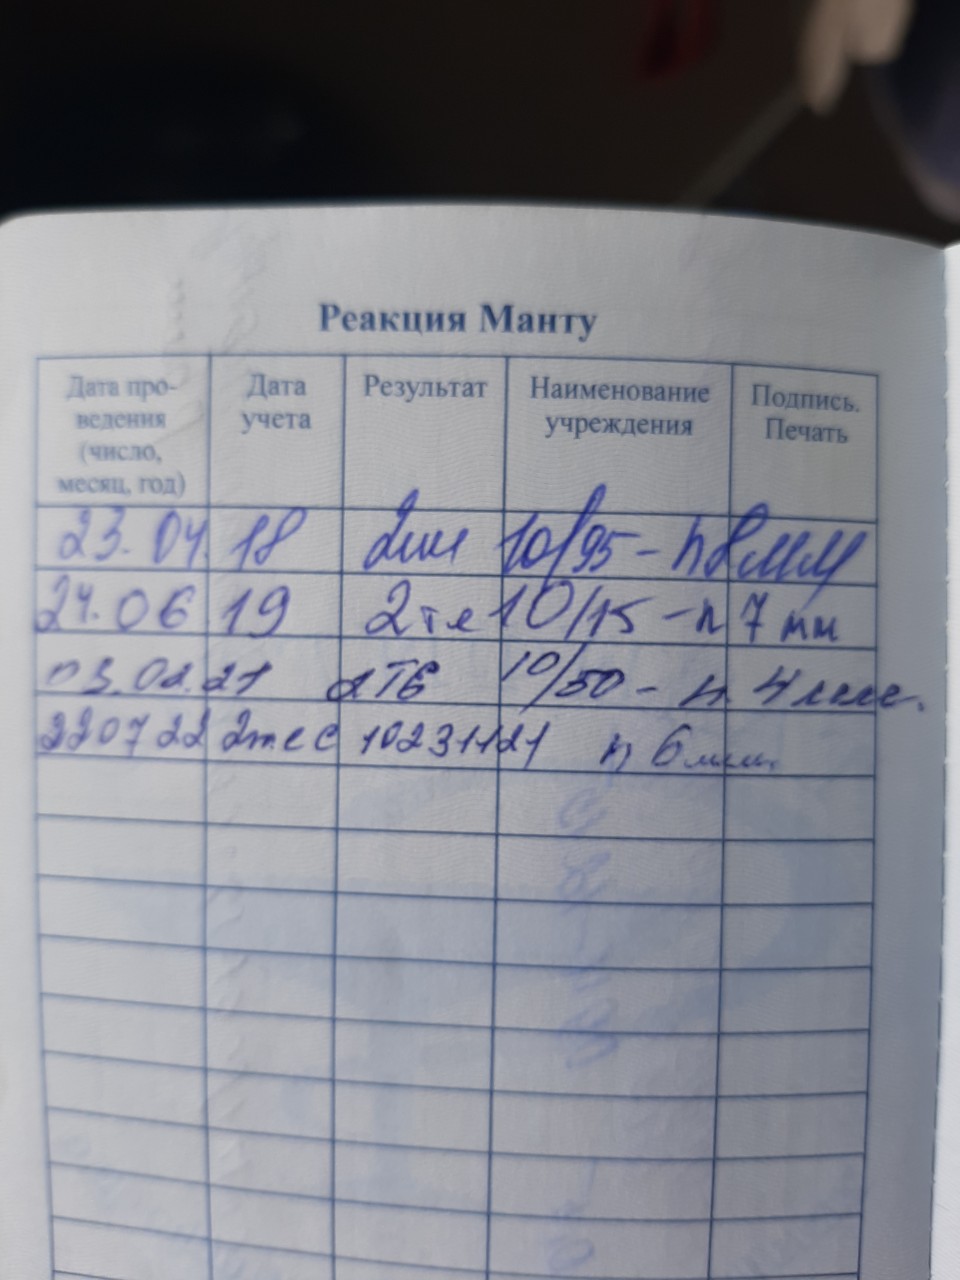 Реакция Манту
Дата про-
ведения
(число,
месяц, год)
Дата
учета
Результат
Наименование
учреждения
Подпись.
Печать
23.04.18 10/95 -
24.06.19 2те 10/15 - п 7 мм
03.08.21 2ТЕ 10/50 -
220722 2те с 1023 п 6 мм.